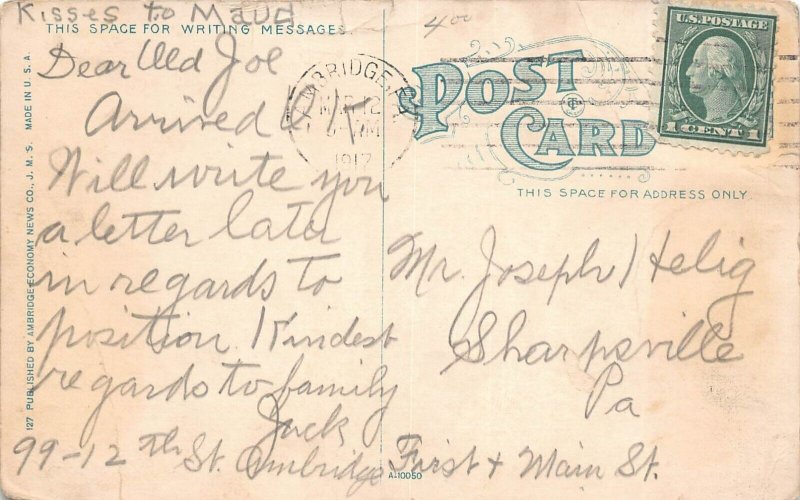 Kisses to Maud
THIS SPACE FOR WRITING MESSAGES.
Dear Old Joe
Arrived
Will write you
a letter later
in regards to
position. Kindest
regards to family
Jack
99-12th St. Ambridge
127 PUBLISHED BY AMBRIDGE ECONOMY NEWS CO., J. M. S. MADE IN U. S. A.
AMBRIDGE, PA.
MAR 12
M
1917
400
POST
CARD
THIS SPACE FOR ADDRESS ONLY
U.S. POSTAGE
1 CENT 1
Mr. Joseph Helig
Sharpsville
Pa
First + Main St.
A-10050